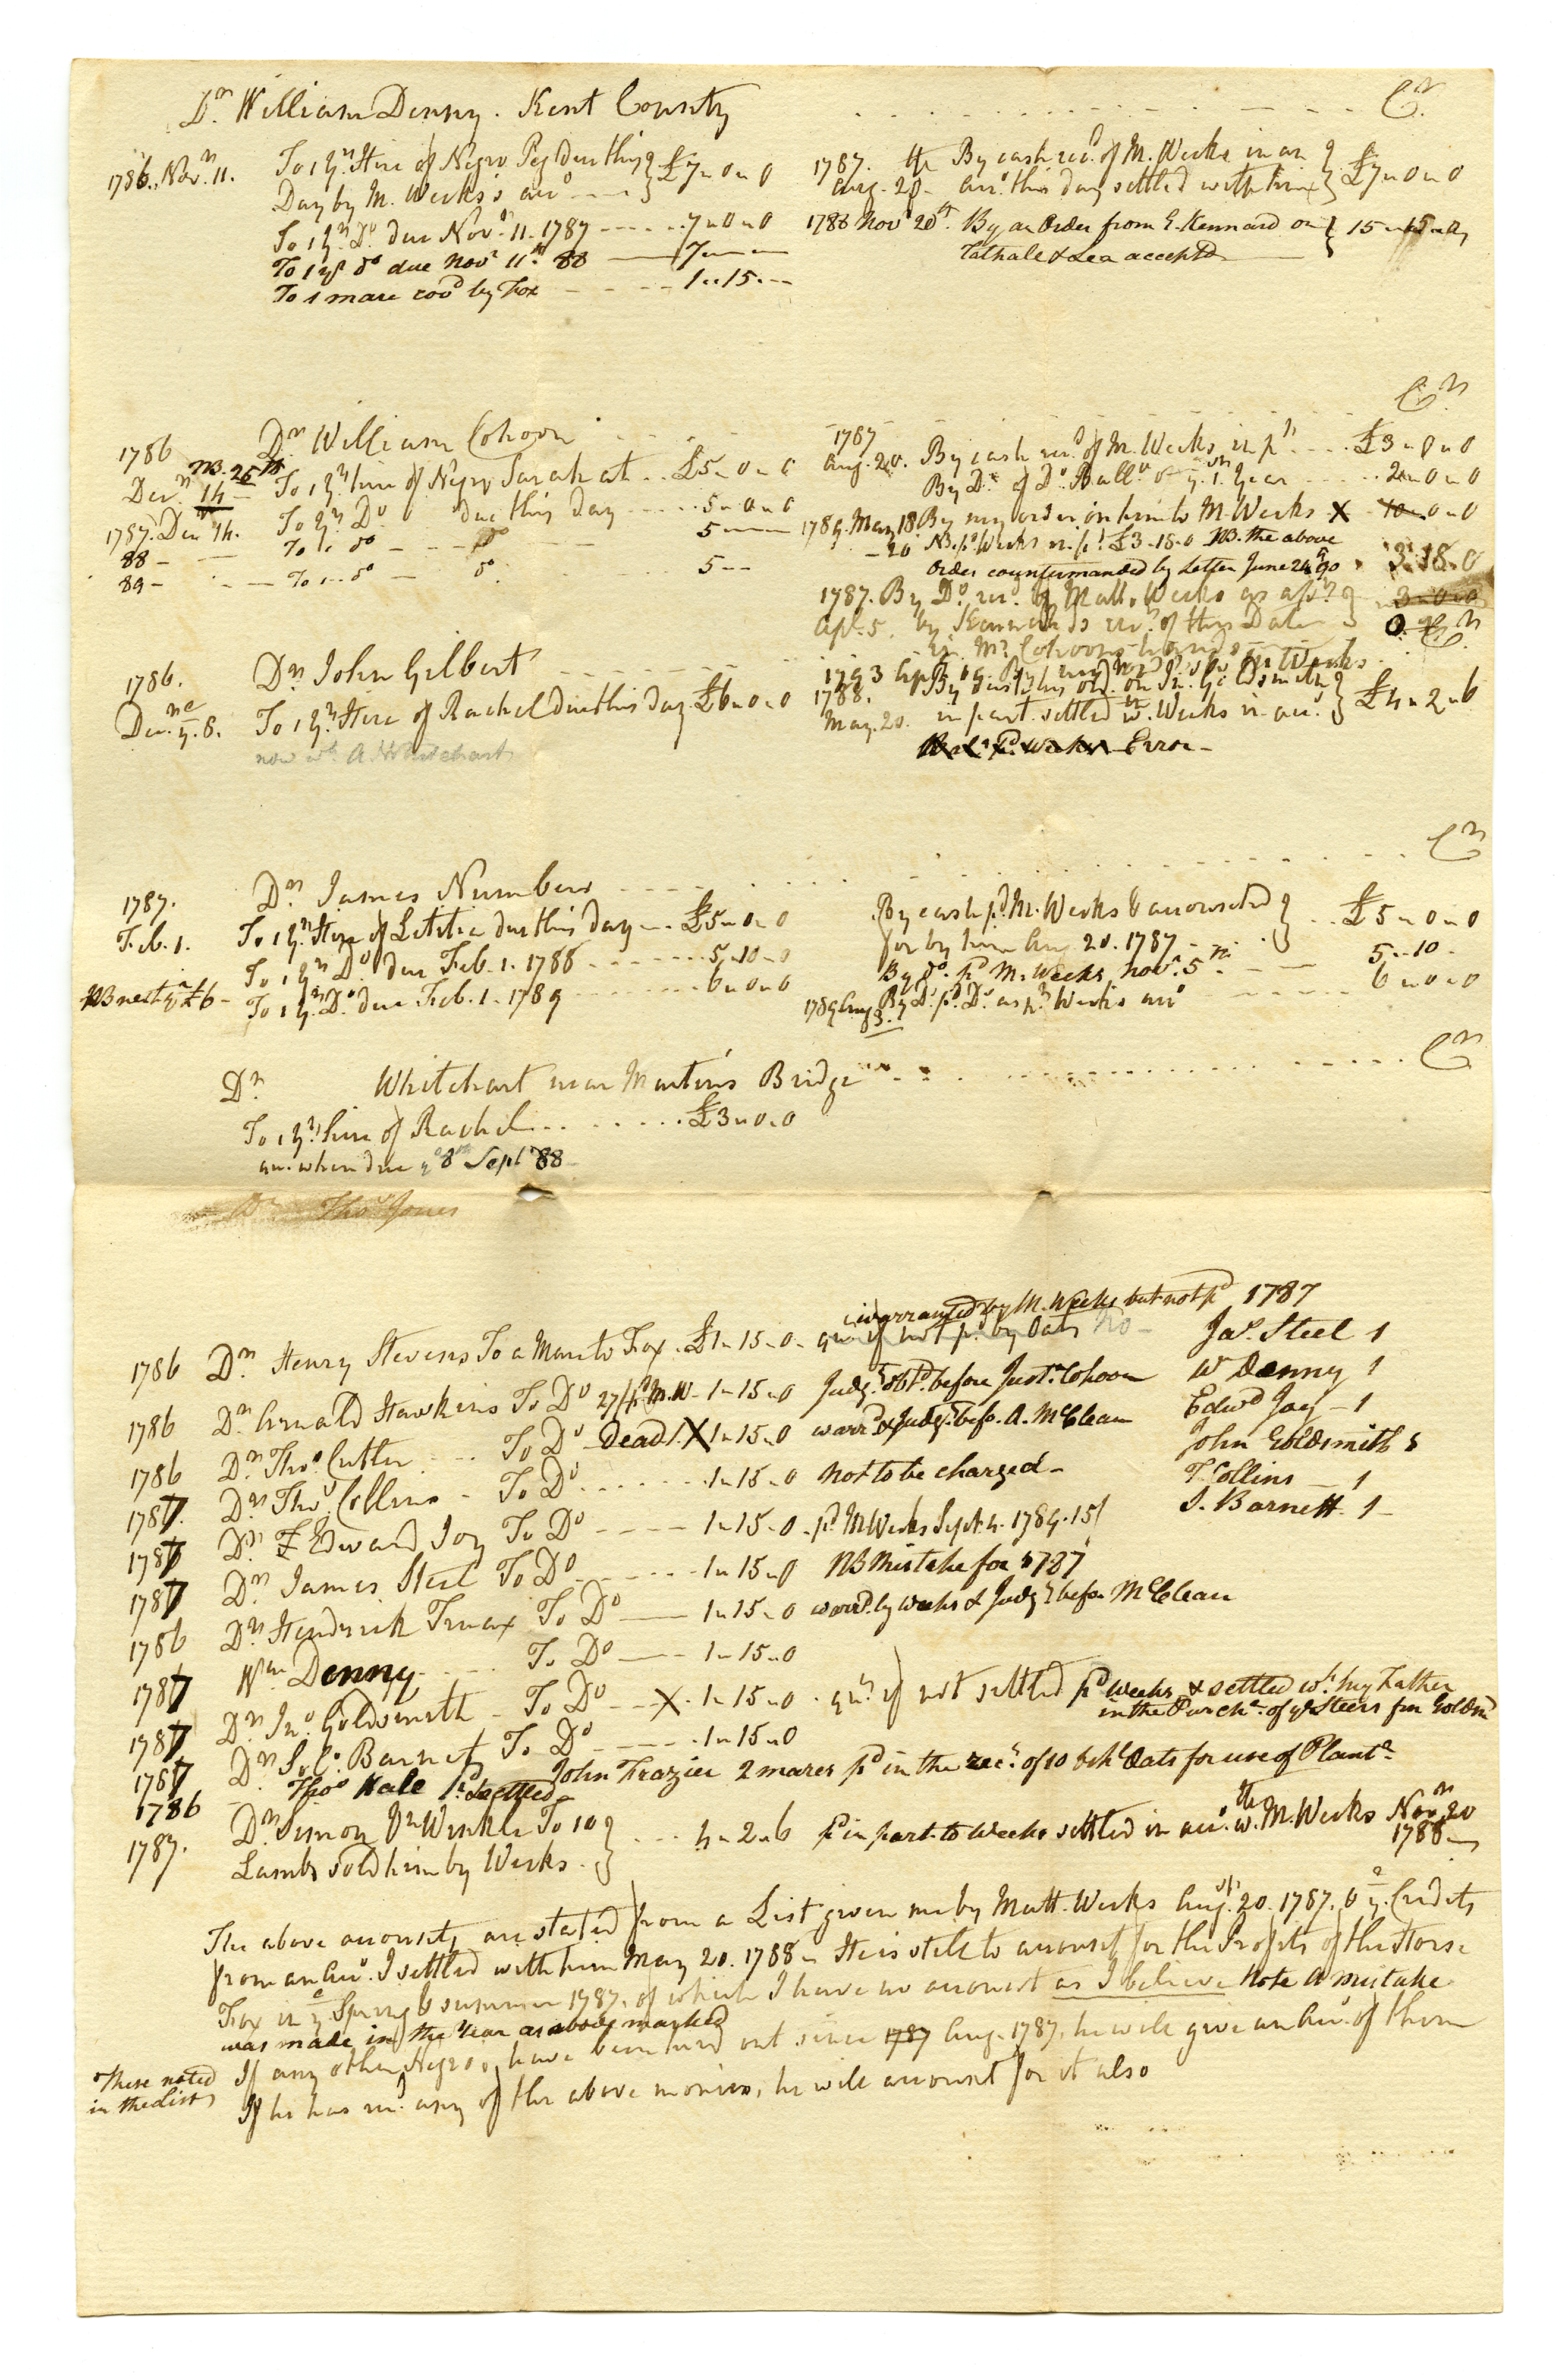 Dr. William Denny. Kent County
Cr.
1786. Novr. 11. To 1 yrs. Hire of Negro Peg due this
Day by M. Weeks's accot £7 " 0 " 0
To 1 yrs. Do. due Novr. 11. 1787 7 " 0 " 0
To 1 yrs do due Novr 11th 88 7
To 1 mare covd by Fox 1 " 15
1787. By cash recd. of M. Weeks in an
Aug. 20. acct. this day settled with him £7 " 0 " 0
1788 Novr 20th. By an Order from E. Kennard on 15
& Lea accepted
Cr.
1786 Dr. William Cohoon
NB. 25th
Decr. 14 To 1 yrs. hire of Negro Sarah at £5 " 0 " 0
1787. Decr 14. To 1 yrs Do due this day 5 " 0 " 0
88 To 1 do do 5
89 To 1 do do 5
1787
Aug. 20. By cash recd. of M. Weeks in pt. £3 " 0 " 0
By Do. of Do. Ballce of ye. 1st. year 2 " 0 " 0
1789. May 18 By my order on him to M. Weeks X 10 " 0 " 0
20 NB. pd Weeks in pt. £3 " 18 " 0 NB. the above
Order countermanded by Letter June 24th 90 3 " 18 " 0
1787. By Do. recd. by Matt. Weeks as apprs
Apl. 5. by Kennards recet. of this Date 3 " 0 " 0
in Mr. Cohoons hands
Cr.
1786. Dr. John Gilbert
Decr. ye. 8. To 1 yrs. Hire of Rachel due this day £6 " 0 " 0
now wt. A. Whitehart
1793
1788. By on Jn. Goldsmith
May. 20. in part settled wth. Weeks in acct. £4 " 2 " 6
Bal. pd. Weeks Error
Cr.
1787. Dr. James Numbers
Feb. 1. To 1 yrs. Hire of Letitia due this day £5 " 0 " 0
To 1 yrs Do. due Feb. 1. 1788 5 " 10 " 0
NB next yr £6 To 1 yrs. Do. due Feb. 1. 1789 6 " 0 " 0
By cash pd. M. Weeks & accounted
for by him Aug. 20. 1787 £5 " 0 " 0
By do. pd M. Weeks, Novr. 5th. 5 " 10
1789 Aug 3. By Do. pd. Do. as pr. Weeks acct 6 " 0 " 0
Cr.
Dr. Whitehart near Martin's Bridge
To 1 yrs. hire of Rachel £3 " 0 " 0
qu. when due ye 8th Sept 88
Dr. Thos Jones
warranted by M. Weeks but not pd 1787
1786 Dr. Henry Stevens To a Mare to Fox £1 " 15 " 0 qu. if not pd. by Oats No
1786 Dr. Arnald Hawkins To Do 27/ pd M.W 1 " 15 " 0 Judgt. obtd. before Juste. Cohoon
1786 Dr. Thos. Cutler To Do Dead X 1 " 15 " 0 warrd. & Judgt. befo. A. McClean
1787. Dr. Thos. Collins To Do 1 " 15 " 0 not to be charged
1787 Dr. Edward Joy To Do 1 " 15 " 0 pd. M Weeks Sept. 4. 1789. 15/
1787 Dr. James Steel To Do 1 " 15 " 0 NB Mistake for 1787
1786 Dr. Hendrick Truax To Do 1 " 15 " 0 warrd. by Weeks & Judgt befo. McClean
1787 Wm Denny To Do 1 " 15 " 0
1787 Dr. Jno. Goldsmith To Do X 1 " 15 " 0 qur. if not settled pd Weeks & settled wt. his Father
in the Purche. of ye Steers fm Goldsmd
1787 Dr. Barnet To Do 1 " 15 " 0
Jas. Steel 1
W Denny 1
Edwd Joy 1
John Goldsmith 1
T Collins 1
S. Barnett 1
1786 Thos Hale pd settled John Frazier 2 mares pd in the rect. of 10 bshl Oats for use of Plantn
1787. Dr. Simon Vn Winkle To 10
Lambs sold him by Weeks. 4 " 2 " 6 pd in part to Weeks settled in acct. wth. M. Weeks Novr 20
1788
The above accounts are stated from a List given me by Matt. Weeks Augst. 20. 1787. & ye. Credits
from an Acct. I settled with him May 20. 1788. He is still to account for the Profits of the Horse
Fox in ye Spring & summer 1787. of which I have no account as I believe Note A mistake
was made in the Year as above marked
If any other Negroes have been hired out since 1787 Aug. 1787. he will give an Acct. of them
These noted
in the list
If he has recd. any of the above monies, he will account for it also